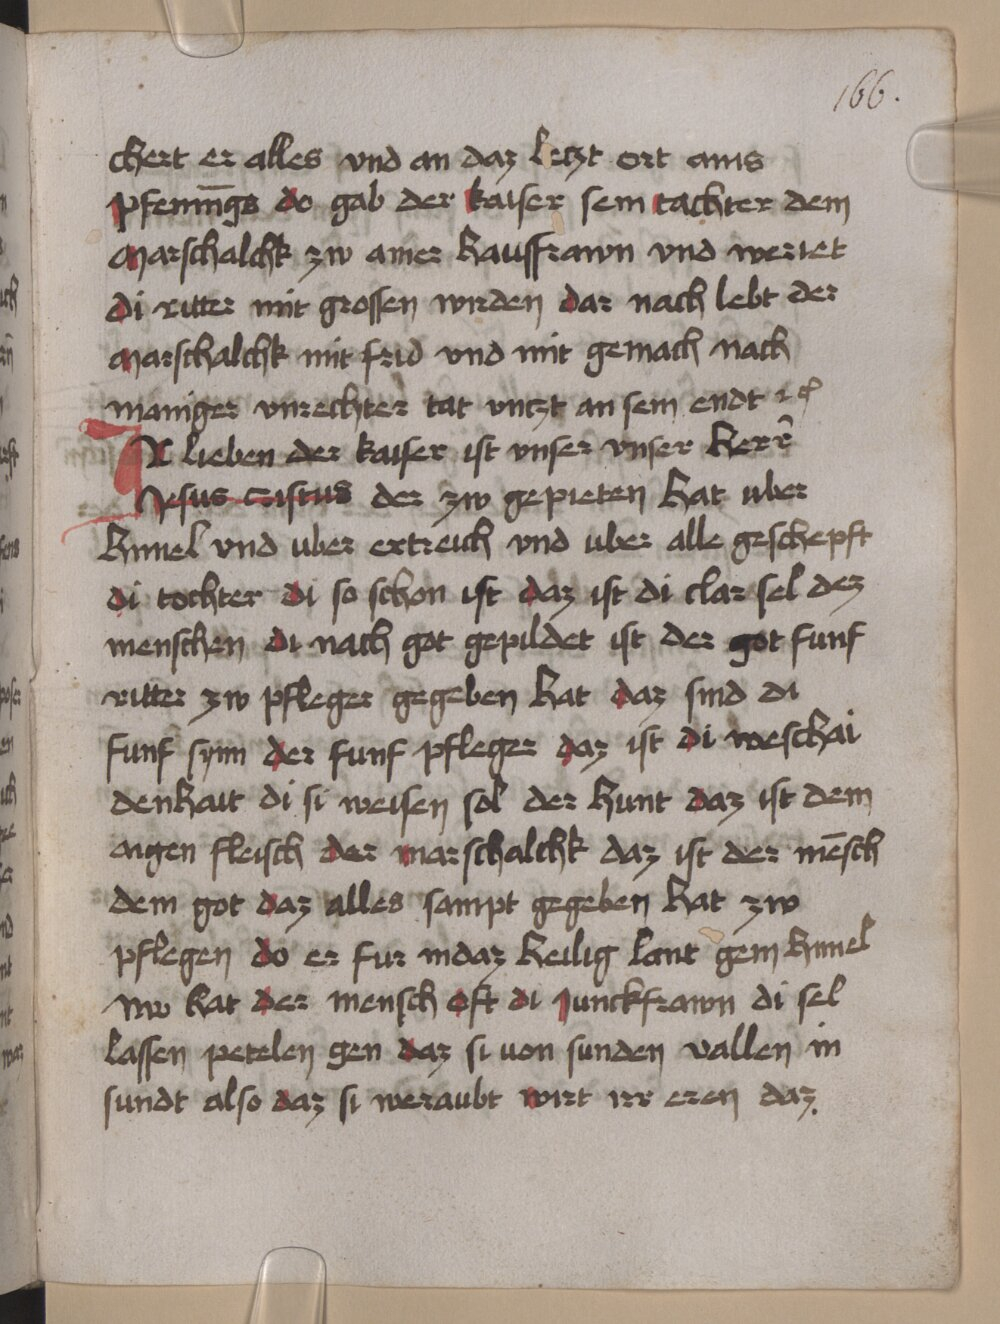 166.
chert er alles vnd an daz letzt ort ains
pfenīngs do gab der kaiser sein tachter dem
marschalchk zw ainer hausfrawn vnd weriet
di ritter mit grossen wirden dar nach lebt der
marschalchk mit frid vnd mit gemach nach
maniger vnrechter tat vntzt an sein endt
Ir lieben der kaiser ist vnser vnser herr
Jesus cristus der zw gepieten hat uber
himel vnd uber ertreich vnd uber alle geschepft
di tochter di so schon ist daz ist di clar sel dez
menschen di nach got gepildet ist der got funf
ritter zw pfleger gegeben hat daz sind di
funf synn der funf pfleger daz ist di weschai
denhait di si weisen sol der hunt daz ist dein
aigen fleisch der marschalchk daz ist der mēsch
dem got daz alles sampt gegeben hat zw
pflegen do er fur indaz heilig lant gein himel
Nw hat der mensch oft di junckfrawn di sel
lassen petelen gen daz si von sunden vallen in
sundt also daz si weraubt wirt irr eren daz